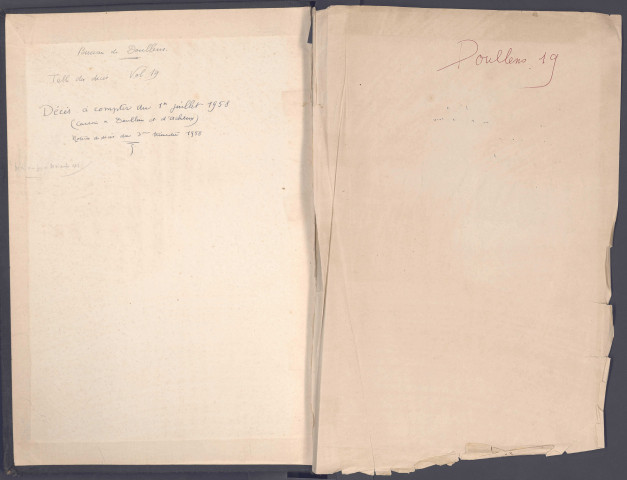 Bureau de Doullens
Table des décès Vol. 19
Décès à compter du 1er juillet 1958
(Canton de Doullens et d'Acheux)
décès du 2me trimestre 1958
Doullens 19